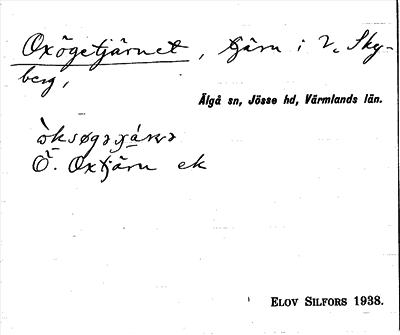 Oxögetjärnet, tjärn i V. Sky-
berg,
Älgå sn, Jösse hd, Värmlands län.
Ö. Oxtjärn ek
ELOV SILFORS 1938.